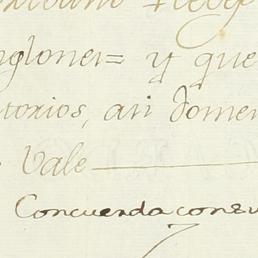 nglones= y que
torios, asi dome
Vale
Concuerda con su